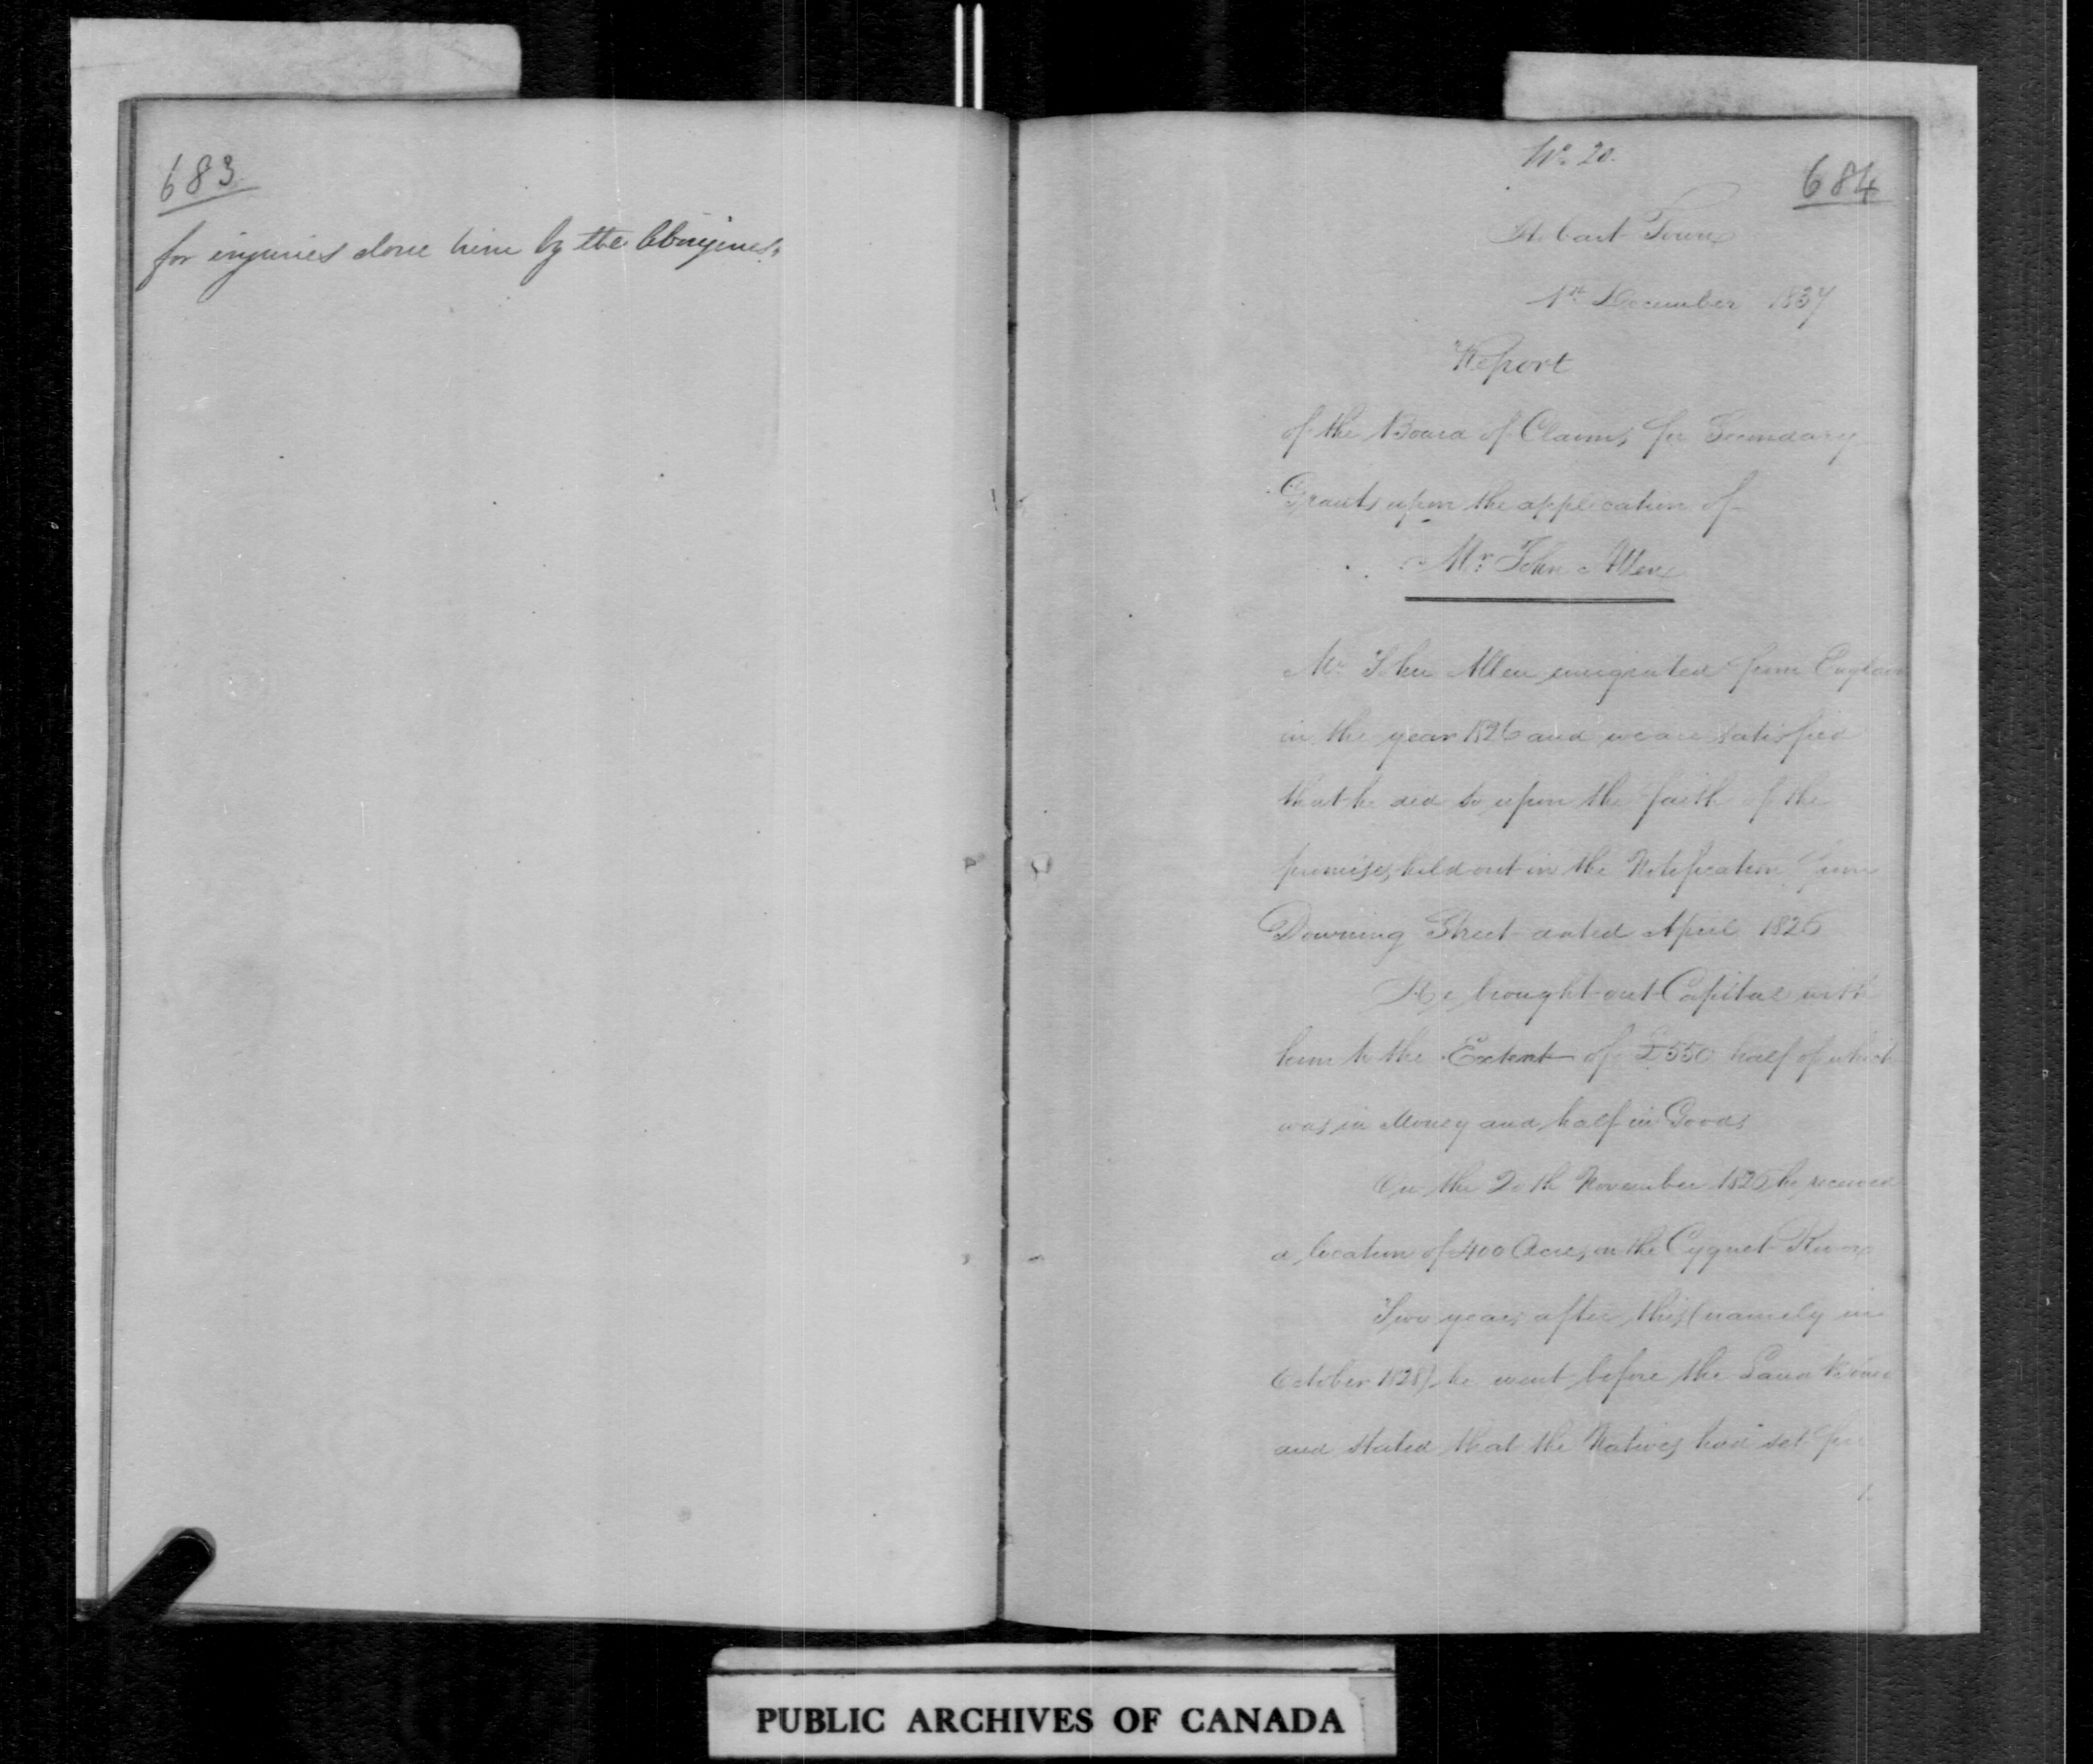 683
for injuries done him by the Aborigines.
No. 20.
684
Hobart Town
1st December 1837
Report
of the Board of Claims for Secondary
Grants upon the application of
Mr. John Allen
Mr. John Allen emigrated from England
in the year 1826 and we are satisfied
that he did so upon the faith of the
promises held out in the Notification from
Downing Street dated April 1826
He brought out Capital with
him to the Extent of £550 half of which
was in Money and half in Goods
On the 20th November 1826 he received
a location of 400 Acres on the Cygnet River
Two years after this (namely in
October 1828) he went before the Land Board
and stated that the Natives had set fire
PUBLIC ARCHIVES OF CANADA